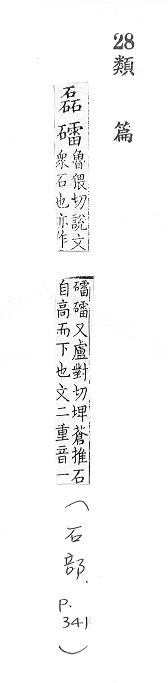 28
類篇
磊礌
魯猥切說文
衆石也亦作
礌礌又盧對切埤蒼推石
自高而下也文二重音一
(石部.
P.
341)